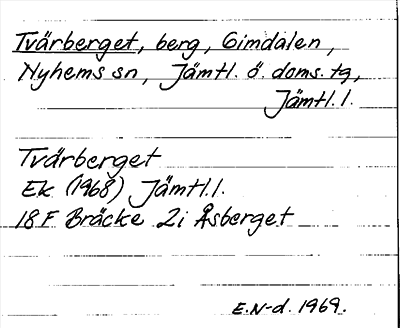 Tvärberget, berg, Gimdalen,
Nyhems sn, Jämtl. ö. doms. tg,
Jämtl. l.
Tvärberget
Ek (1968) Jämtl. l.
18 F Bräcke 2i Åsberget
E.N-d. 1969.